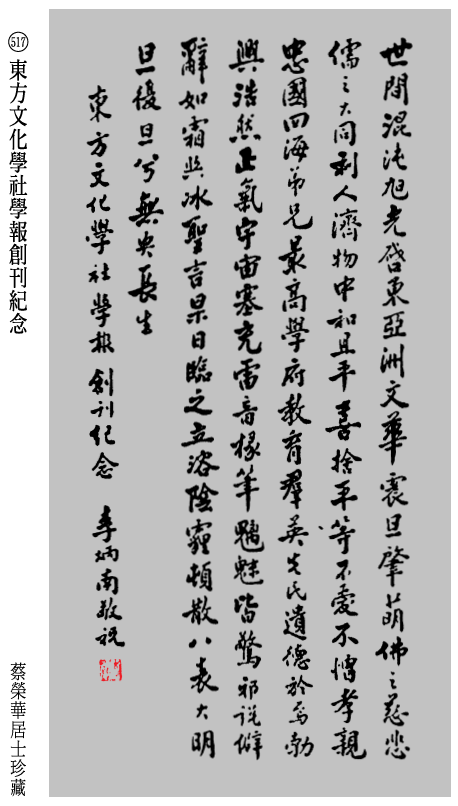 世間混沌旭光啓東亞洲文華震旦肇萌佛之慈悲
儒之大同利人濟物中和且平喜捨平等不愛不憎孝親
忠國四海弟兄最高學府教育羣英先民遺德於焉勃
興浩然正氣宇宙塞充雷音椽筆魑魅皆驚邪説僻
辭如霜與冰聖言杲日臨之立溶陰霾頓散八表大明
旦復旦兮無央長生
東方文化學社學報創刊紀念 李炳南敬祝
517 東方文化學社學報創刊紀念
蔡榮華居士珍藏